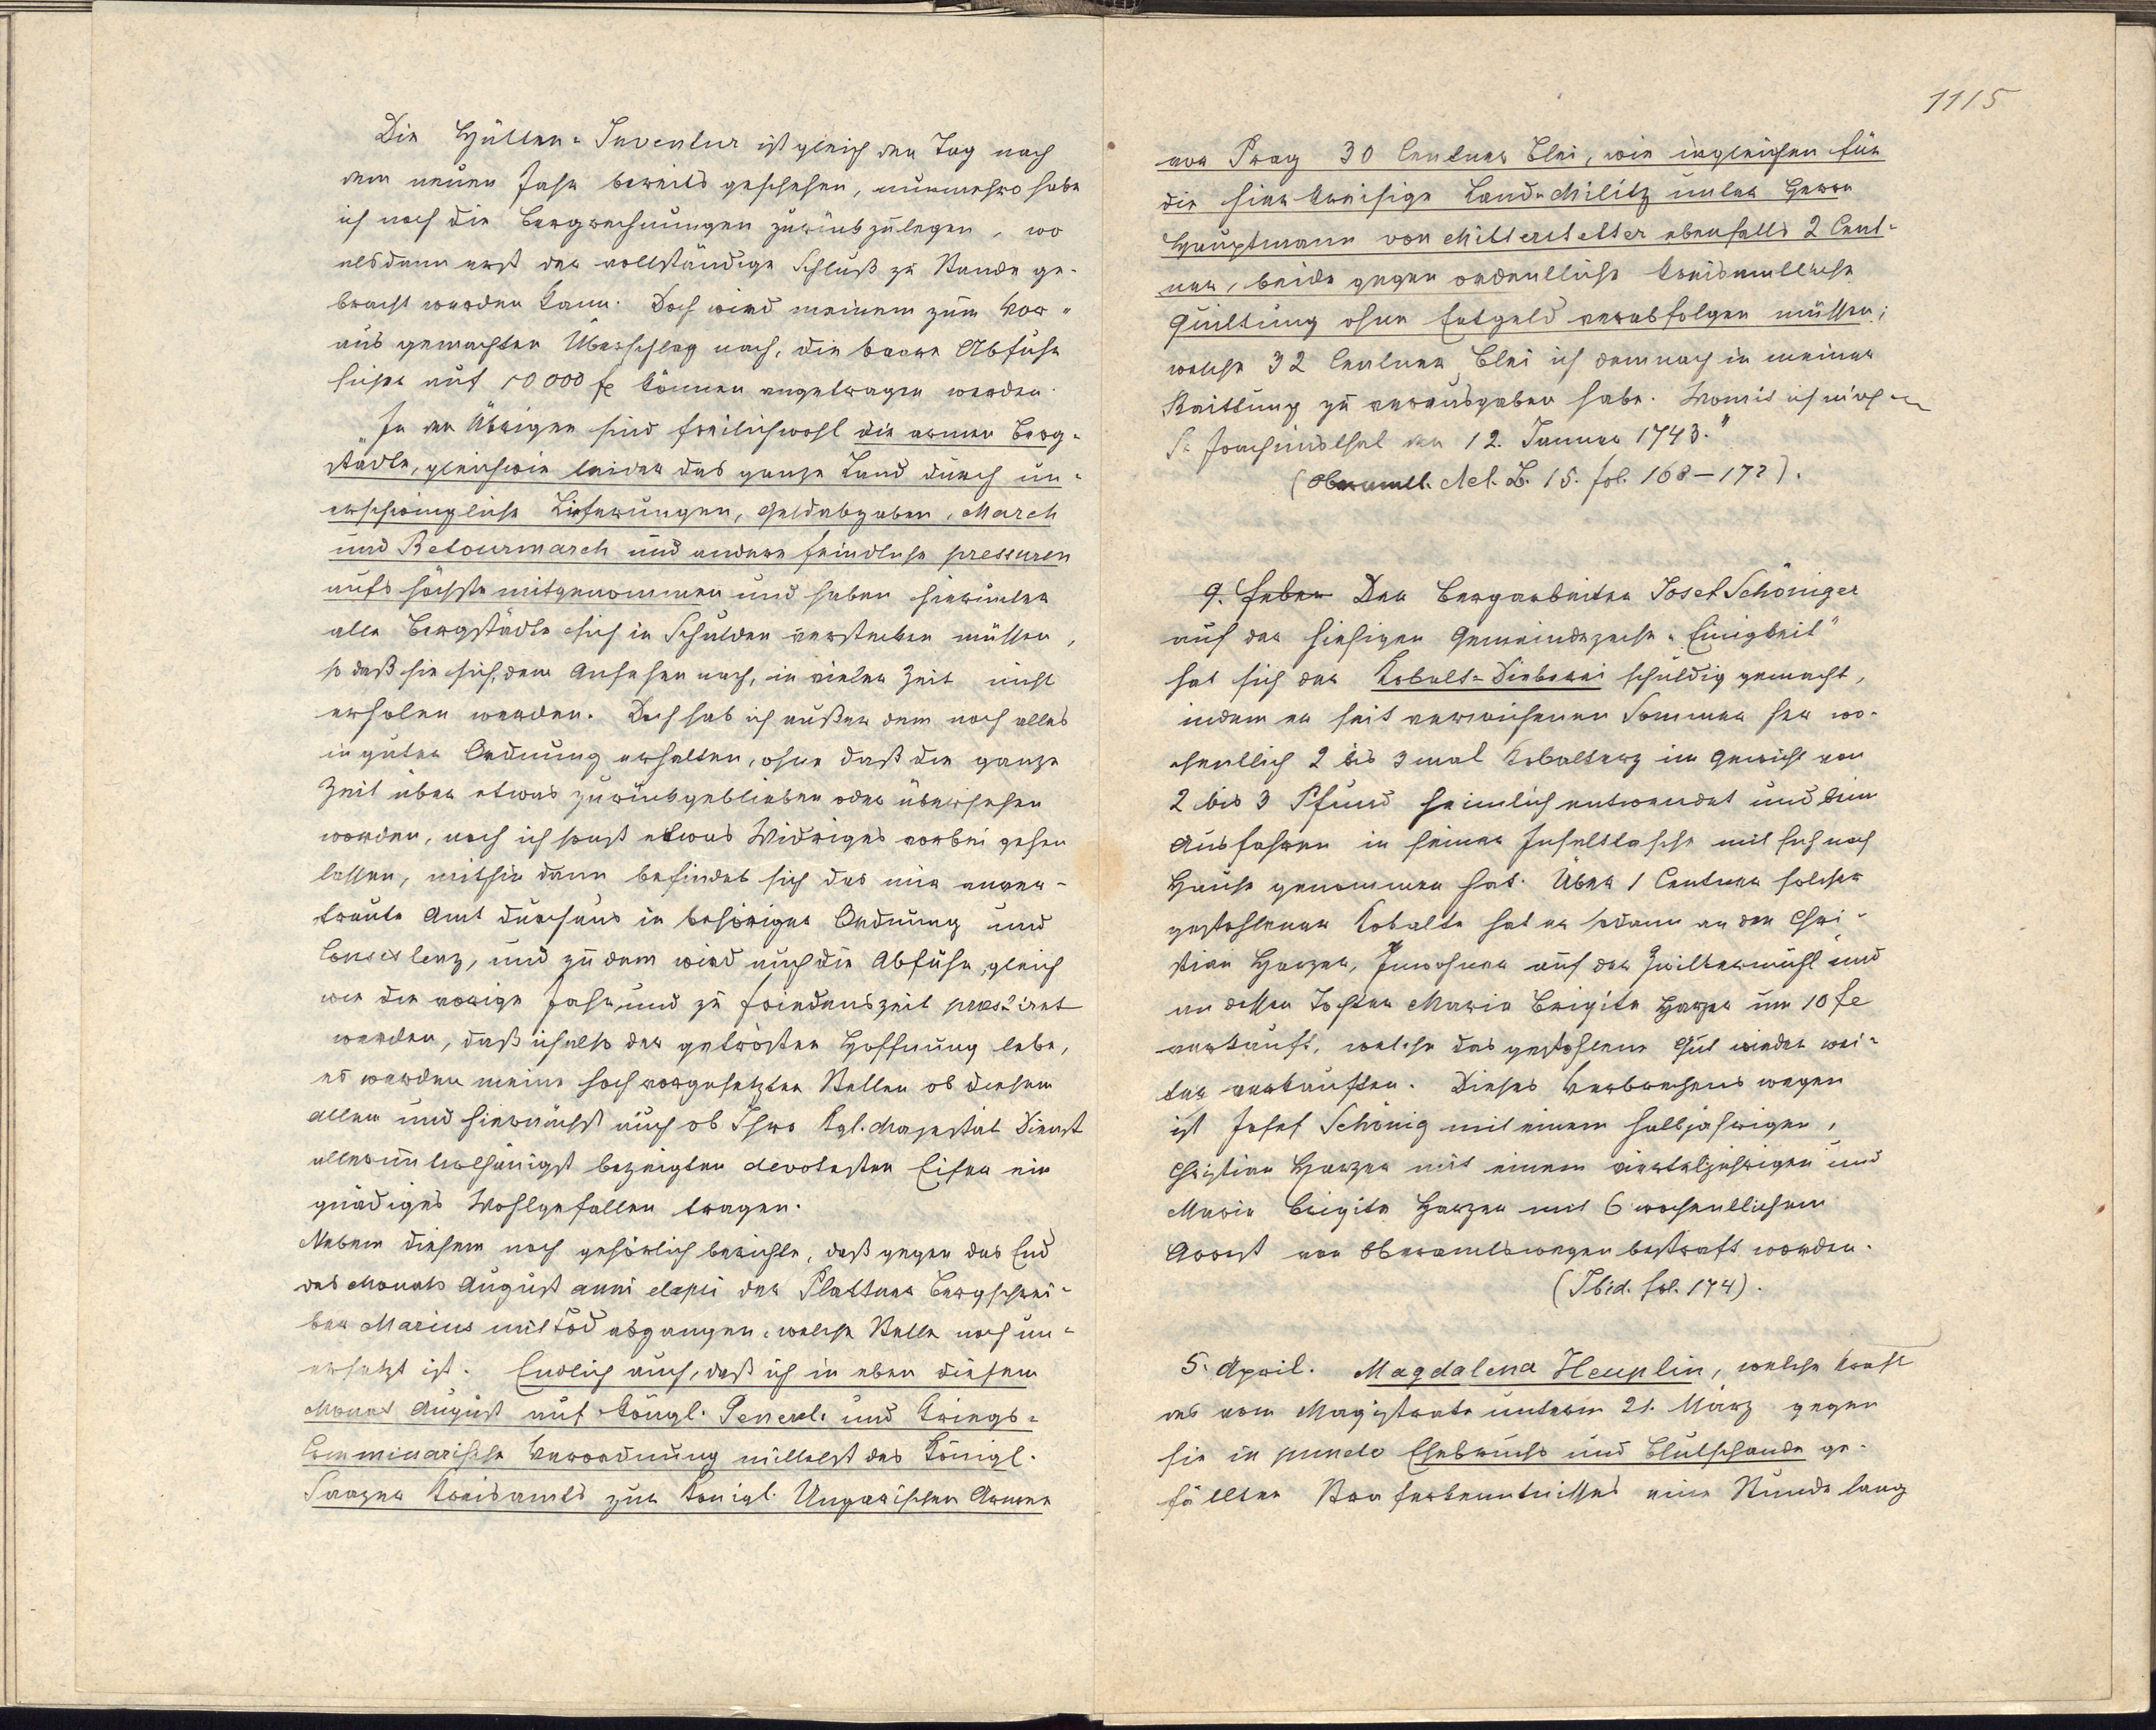 Die Hütten-Inventur ist gleich den Tag nach
dem neuen Jahr bereits geschehen, nunmehro habe
ich noch die Bergrechnungen zurückzulegen, wo
alsdann erst der vollständige Schluß zu Stande ge-
bracht werden kann. Doch wird meinem zum Vor-
aus gemachten Überschlag nach, die baare Abfuhr
sicher auf 10000 fl können angetragen werden.
"In den Übrigen sind freilichwohl die armen Berg-
städte, gleichwie leider das ganze Land durch un-
erschwingliche Lieferungen, Geldabgaben, March
und Retourmarch und andere feindliche pressuren
aufs höchste mitgenommen und haben hierunter
alle Bergstädte sich in Schulden verstecken müssen,
so daß sie sich, dem Ansehen nach, in vieler Zeit nicht
erholen werden. Doch hab ich außer dem noch alles
in guter Ordnung erhalten, ohne daß die ganze
Zeit über etwas zurückgeblieben oder übersehen
worden, noch ich sonst etwas Widriges vorbei gehen
lassen, mithin dann befindet sich das mir anver-
traute Amt durchaus in behöriger Ordnung und
Consistenz, und zu dem wird auch die Abfuhr, gleich
wie die vorige Jahr und zu Friedenszeit præstiret
werden, daß ich also der getrösten Hoffnung lebe,
es werden meine hoch vorgesetzten Stellen ob diesem
allen und hiernächst auch ob Ihro kgl. Majestät Dienst
allerunterthänigst bezeigten devotesten Eifer ein
gnädiges Wohlgefallen tragen.
Nebem diesem noch gehörlich berichte, daß gegen das End
des Monats August anni elapsi der Plattner Bergschrei-
ber Marius mit Tod abgangen, welche Stelle noch un-
ersetzt ist. Endlich auch, daß ich in eben diesem
Monat August auf köngl. General- und Kriegs-
Commissarische Verordnung mittelst des Königl.
Saazer Kreisamts zur Königl. Ungarischen Armee
1115
vor Prag 30 Centner Blei, wie ingleichen für
die hierkreisige Land-Militz unter Herrn
Hauptmann von Mitterstetter ebenfalls 2 Cent-
ner, beide gegen ordentliche kreisamtliche
Quittung ohne Entgeld verabfolgen müssen;
welche 32 Centner Blei ich demnach in meiner
Raittung zu verausgaben habe. Womit ich mich
St. Joachimsthal den 12. Januar 1743."
(Oberamtl. Act. B. 15. fol. 168-172).
9. Feber Der Bergarbeiter Josef Schöniger
auf der hiesigen Gemeindezeche "Einigkeit"
hat sich der Kobalt-Dieberei schuldig gemacht,
indem er seit verwichenen Sommer her wo-
chentlich 2 bis 3 mal Kobalterz im Gewicht von
2 bis 3 Pfund heimlich entwendet und beim
Ausfahren in seiner Inselttasche mit sich nach
Hause genommen hat. Über 1 Centner solcher
gestohlener Kobalte hat er sodann an den Chri-
stian Harzer, Inwohner auf der Zwittermühl und
an dessen Tochter Maria Brigita Harzer um 10 fl
verkauft, welche das gestohlene Gut wieder wei-
ter verkauften. Dieses Verbrechens wegen
ist Josef Schönig mit einem halbjährigen,
Christian Harzer mit einem vierteljährigen und
Maria Brigita Harzer mit 6 wochentlichem
Arrest von Oberamtswegen bestraft worden.
(Ibid. fol. 174).
5. April. Magdalena Heuplin, welche kraft
des vom Magistrate unterm 21. März gegen
sie in puncto Ehebruchs und Blutschande ge-
fällten Straferkenntnisses eine Stunde lang